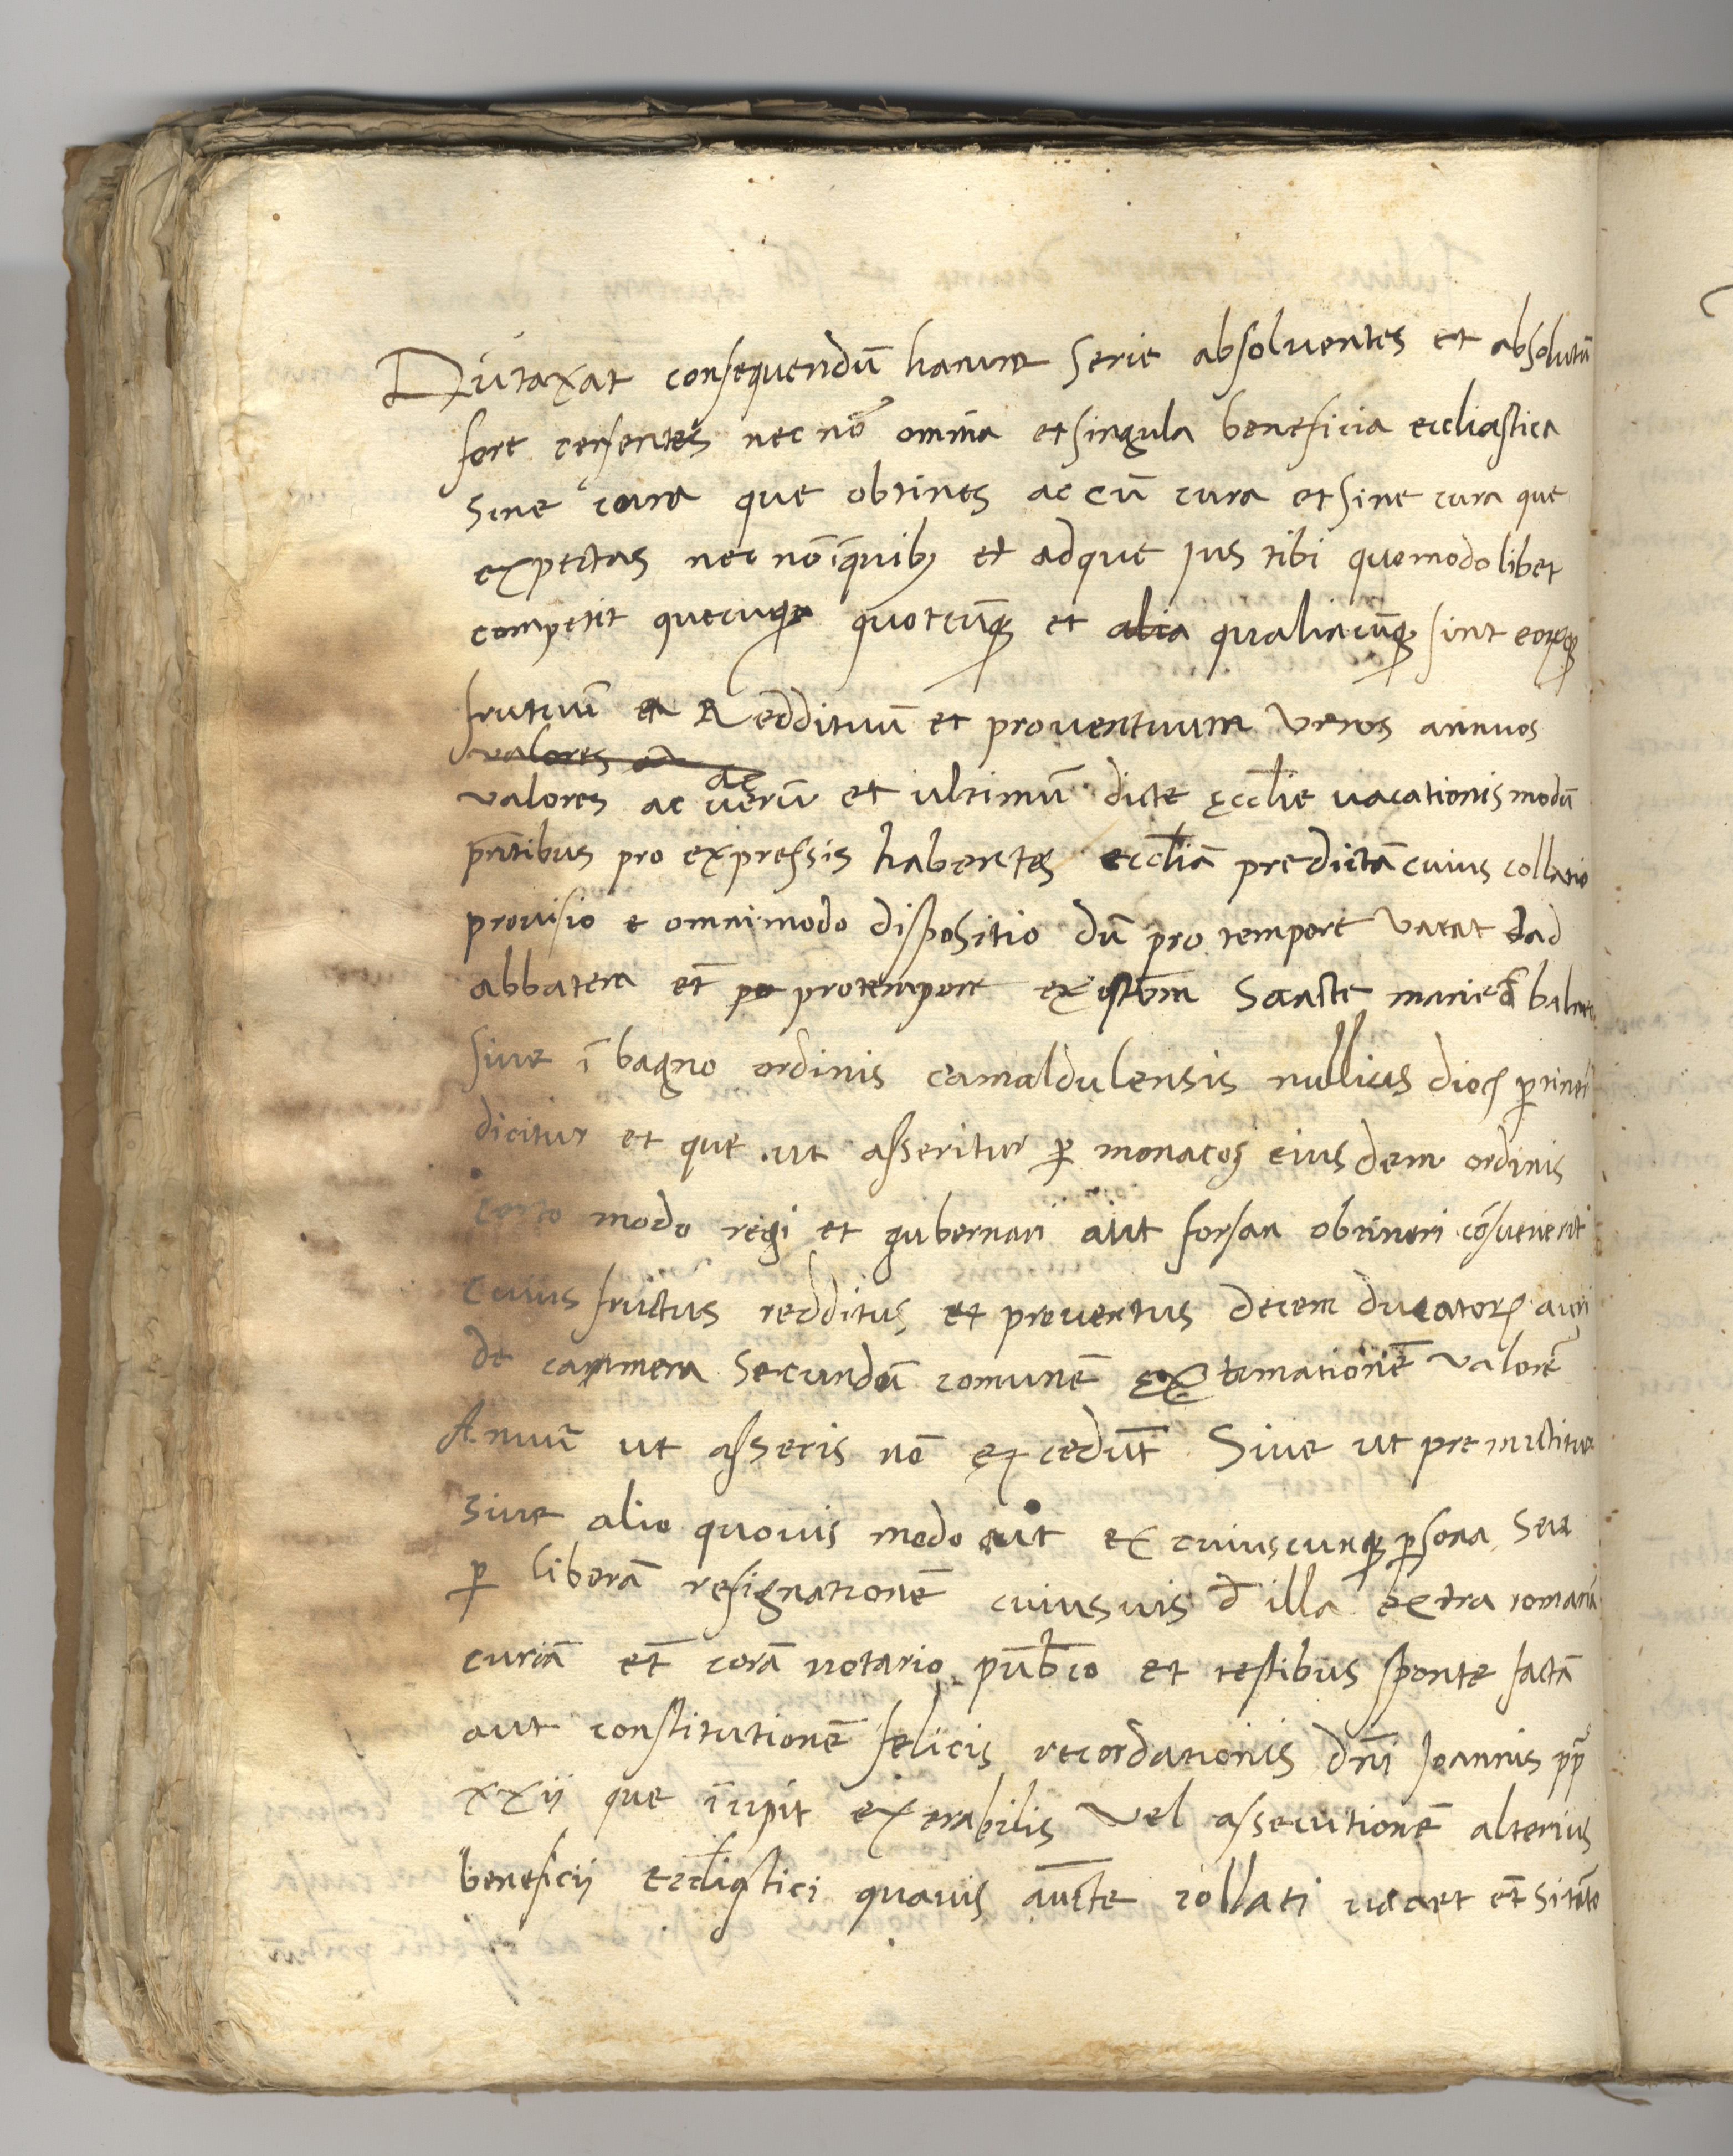 Dūtaxat consequendū harum serie absoluentes et absolutū
fore censentes nec nō omnia et singula beneficia eccliastica
sine cura que obtines ac cū cura et sine cura que
expectas nec nō ī quibꝫ et ad que ius tibi quomodolibet
competit quecūqꝫ quotcūqꝫ et alia qualiacūqꝫ sint eorūqꝫ
frutuū et Reddituū et prouentuum veros annuos
valores ac
valores ac ac uerū et ultimū dicte ęcclie uacationis modū
pn̄tibus pro expressis habentes eccliā predictā cuius collatio
prouisio e omnimodo dispositio dū pro tempore vacat ad
abbatem et̄ po pro tempore existem̄ Sancte marie ī balneo
siue ī bagno ordinis camaldulensis nullius dioc̨ ꝑtineri
dicitur et que ut asseritur ꝑ monacos eiusdem ordinis
certo modo regi et gubernari aut forsan obtineri cōsueuerūt
Cuius fructus redditus et prouentus decem ducatorꝝ auri
de cammera secundū comunē extimationē valorē
Annuū ut asseris nō excedūt Siue ut premictitur
siue alio quouis modo aut ex cuiuscunqꝫ ꝑsona seu
ꝑ liberā resignationē cuiusuis đ illa extra romanā
curiā et̄ corā notario pub̄co et testibus sponte factā
aut constitutionē felicis recordationis dn̄i Joannis pp̄
xxij que īcipit exerabilis vel assecutionē alterius
beneficij eccliastici quauis auc̄te collati uacet et̄ si tāto